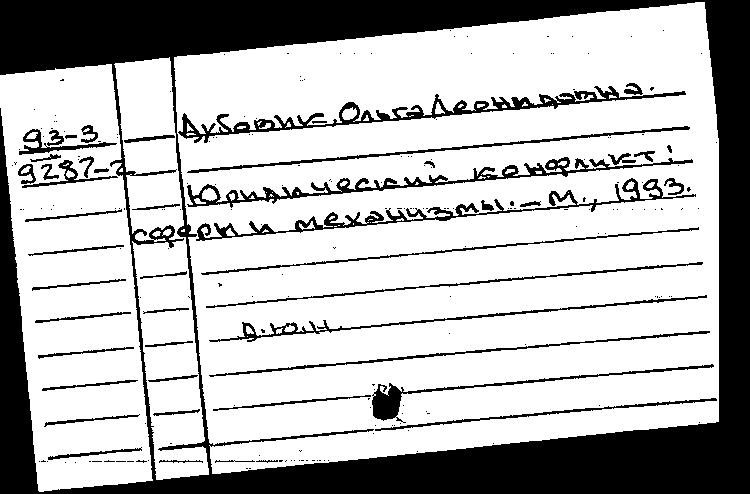 93-3
9287-2
Дубовик, Ольга Леонидовна.
Юридический конфликт:
сферы и механизмы. — М., 1993.
д.ю.н.